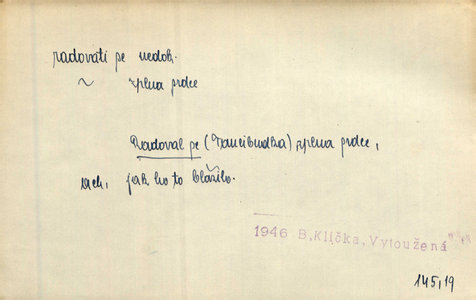 radovati se nedok.
~ zplna srdce
Radoval se (Tancibudka) zplna srdce,
ach, jak ho to blážilo.
1946 B,Klička,Vytoužená
145,19